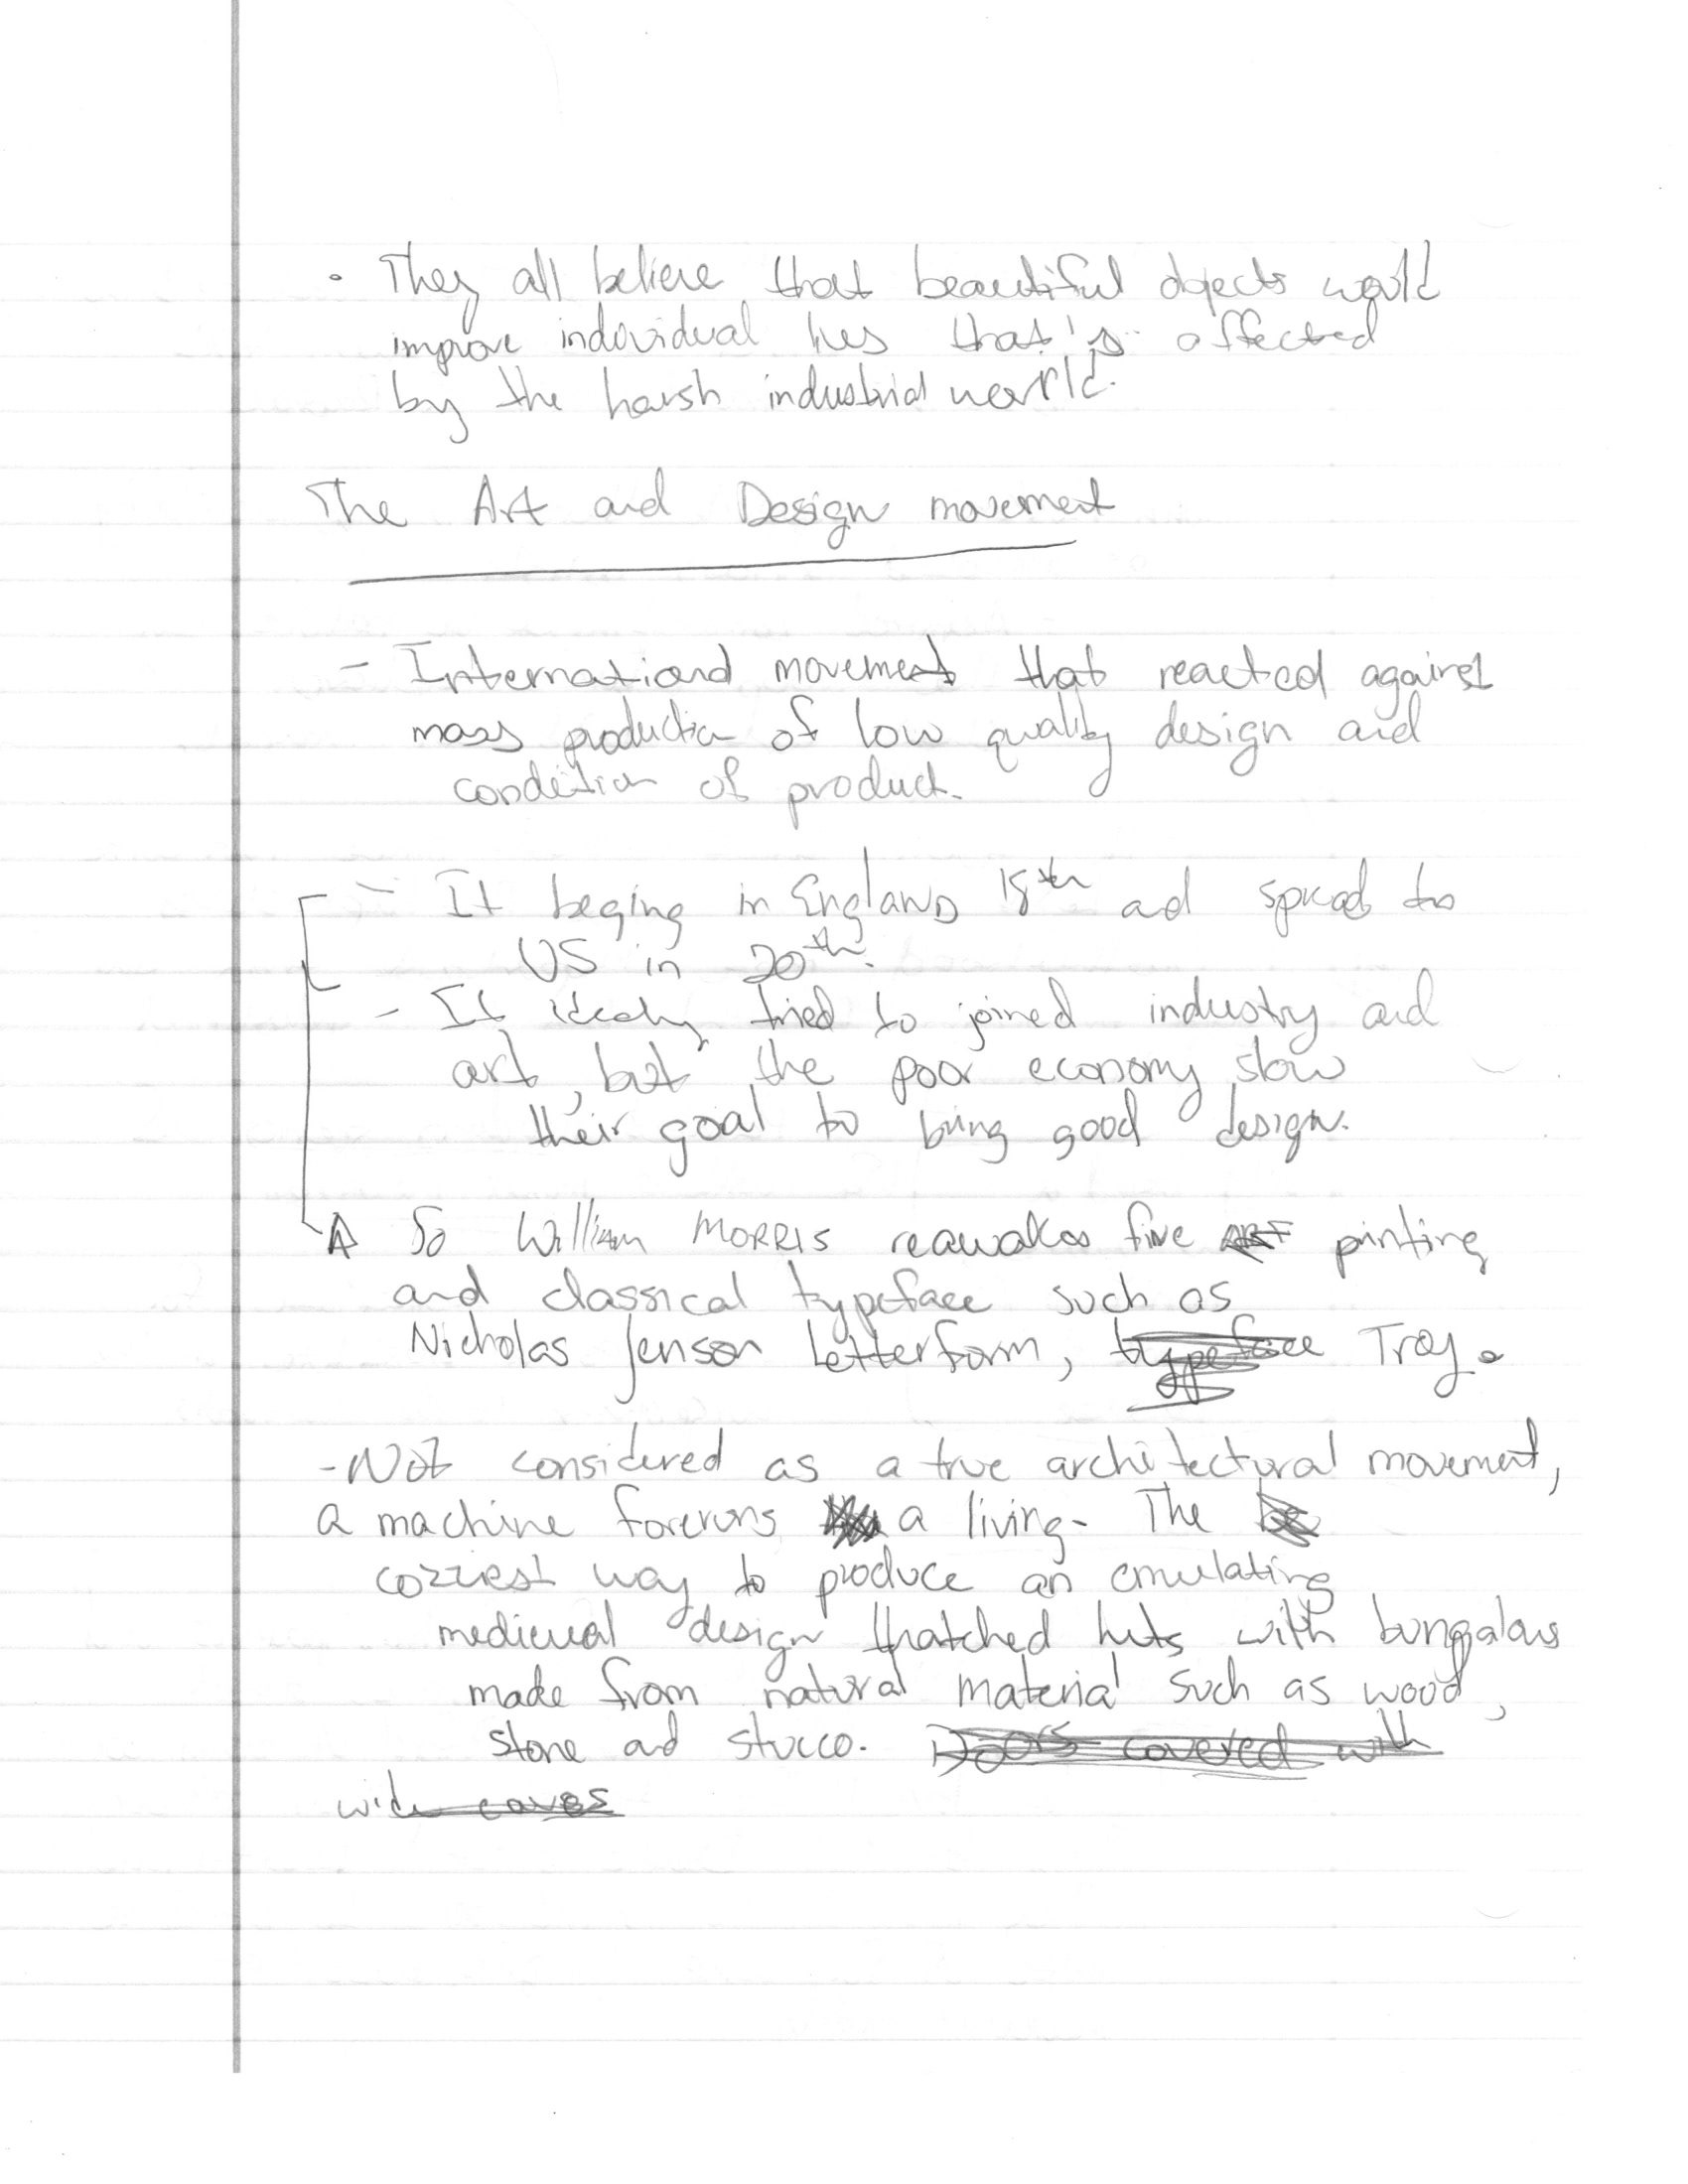 • They all believe that beautiful objects would
improve individual lives that's affected
by the harsh industrial world.
The Art and Design movement
- International movement that reacted against
mass production of low quality design and
condition of product.
- It beging in England 18th and spread to
US in 20th.
- It idealy tried to joined industry and
art, but the poor economy slow
their goal to bring good design.
So William MORRIS reawakes fine printing
and classical typeface such as
Nicholas Jenson letterform, typeface Troy.
- Not considered as a true architectural movement,
a machine foreruns a living. The
cozziest way to produce an emulating
medieval design thatched huts with bungalows
made from natural material such as wood,
stone and stucco. Doors covered with
wide eaves